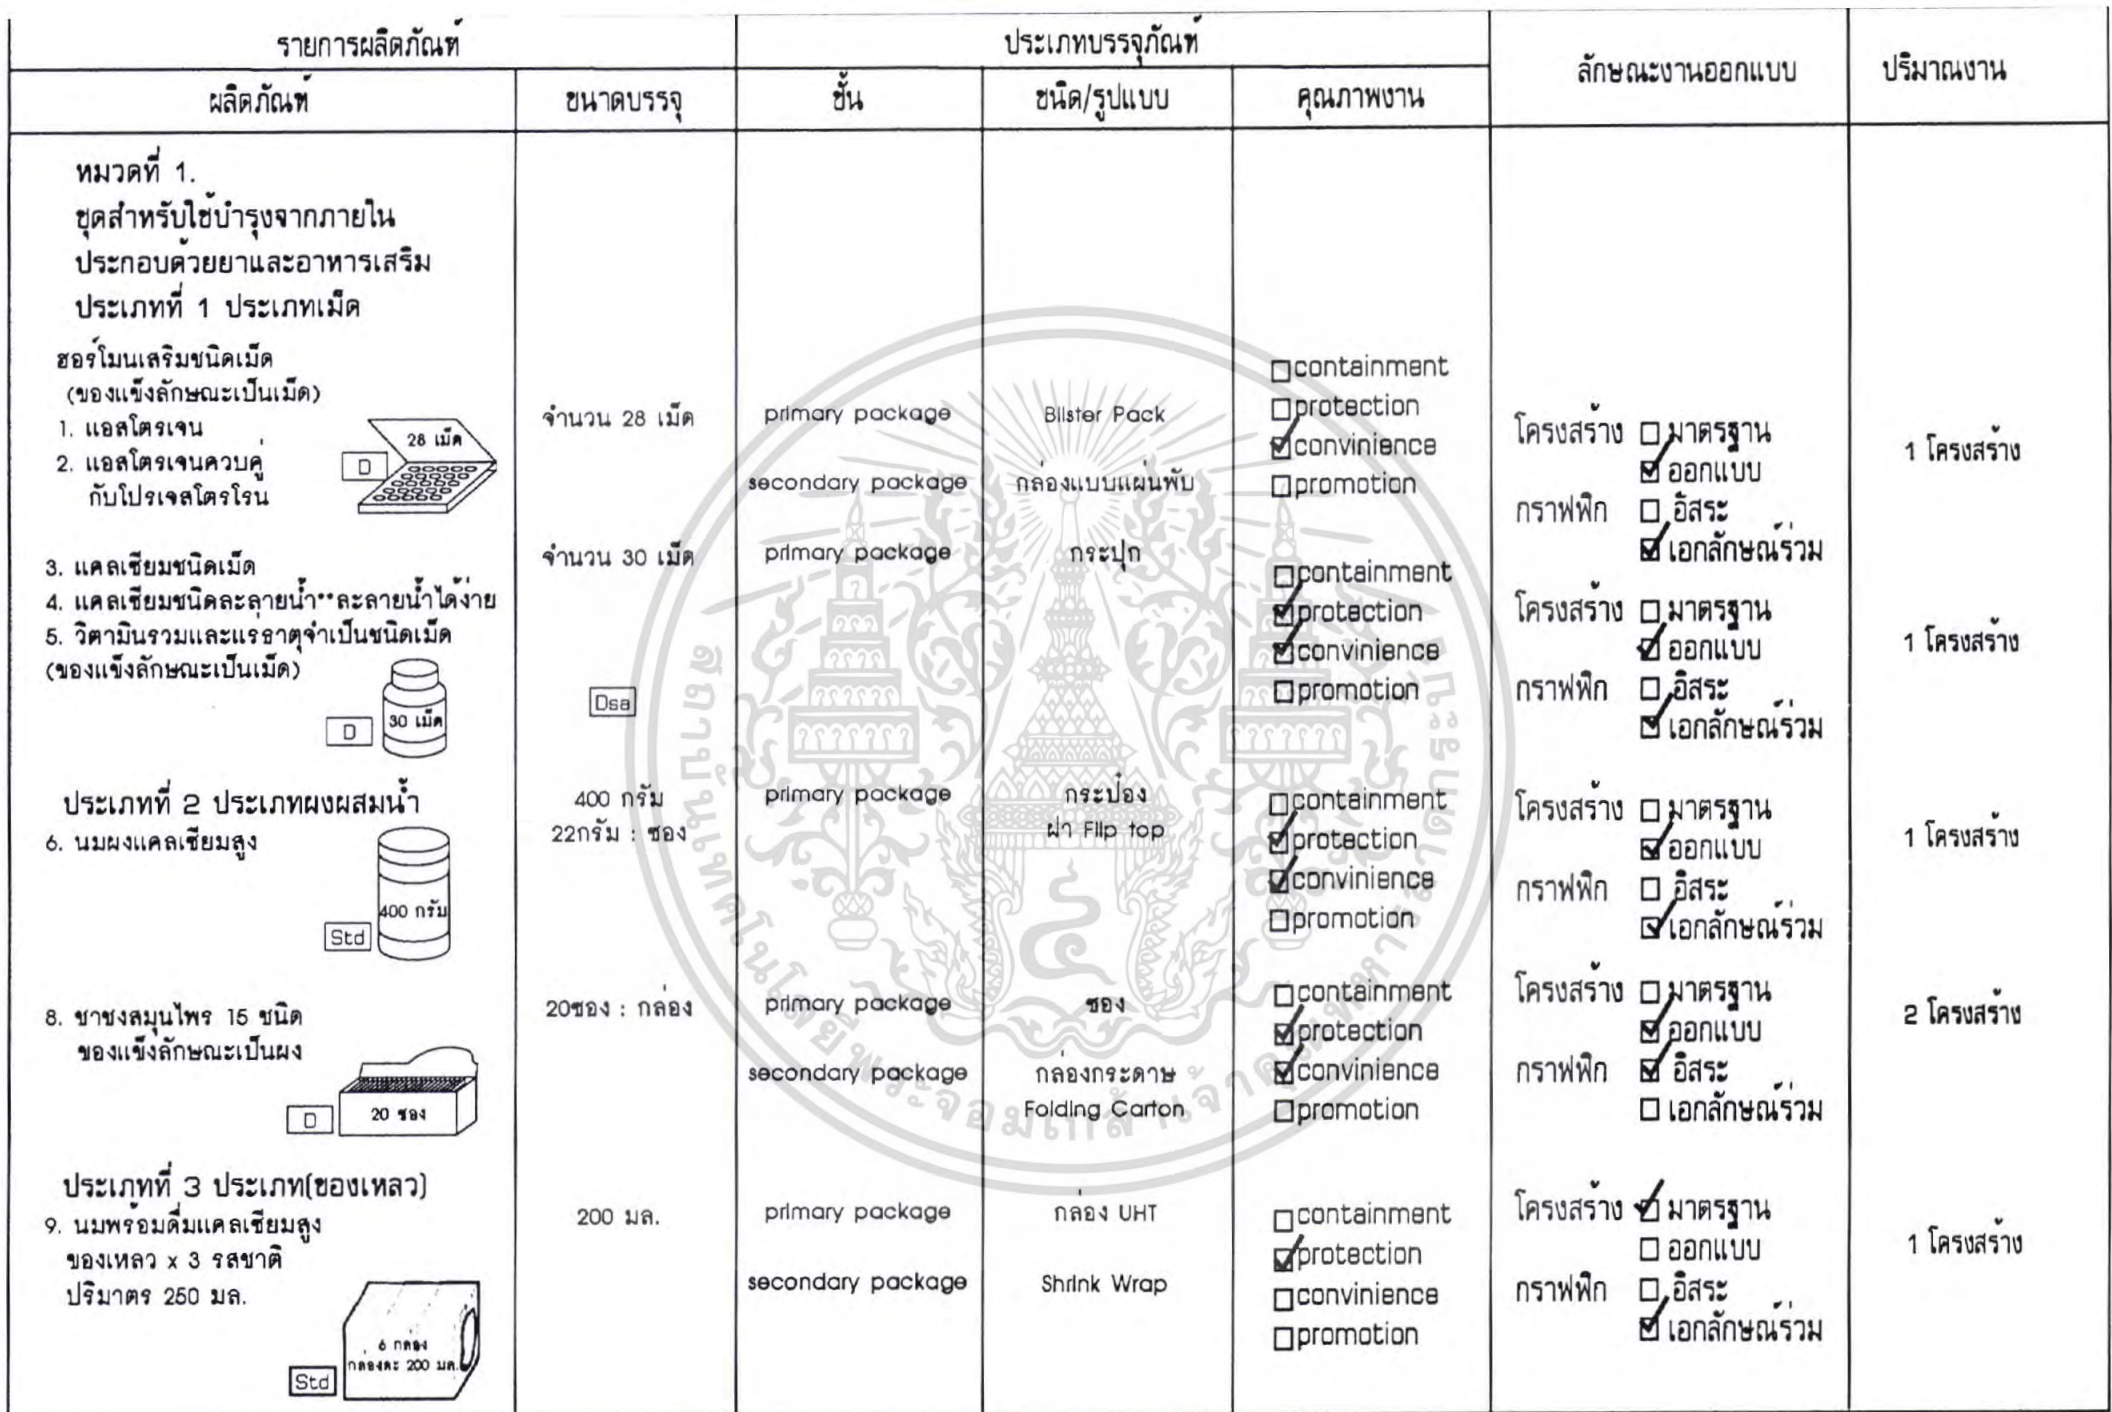 รายการผลิตภัณฑ์
ประเภทบรรจุภัณฑ์
ลักษณะงานออกแบบ
ปริมาณงาน
ผลิตภัณฑ์
ขนาดบรรจุ
ชั้น
ชนิด/รูปแบบ
คุณภาพงาน
หมวดที่ 1.
ชุดสำหรับใช้บำรุงจากภายใน
ประกอบด้วยยาและอาหารเสริม
ประเภทที่ 1 ประเภทเม็ด
ฮอร์โมนเสริมชนิดเม็ด
(ของแข็งลักษณะเป็นเม็ด)
1. แอสโตรเจน
2. แอสโตรเจนควบคู่
กับโปรเจสโตรโรน
28 เม็ด
D
จำนวน 28 เม็ด
primary package
Blister Pack
secondary package
กล่องแบบแผ่นพับ
containment
protection
convinience
promotion
โครงสร้าง มาตรฐาน
ออกแบบ
กราฟฟิก อิสระ
เอกลักษณ์ร่วม
1 โครงสร้าง
3. แคลเซียมชนิดเม็ด
4. แคลเซียมชนิดละลายน้ำ**ละลายน้ำได้ง่าย
5. วิตามินรวมและแร่ธาตุจำเป็นชนิดเม็ด
(ของแข็งลักษณะเป็นเม็ด)
30 เม็ด
D
จำนวน 30 เม็ด
Dsa
primary package
กระปุก
containment
protection
convinience
promotion
โครงสร้าง มาตรฐาน
ออกแบบ
กราฟฟิก อิสระ
เอกลักษณ์ร่วม
1 โครงสร้าง
ประเภทที่ 2 ประเภทผงผสมน้ำ
6. นมผงแคลเซียมสูง
400 กรัม
Std
400 กรัม
22กรัม : ซอง
primary package
กระป๋อง
ฝา Flip top
containment
protection
convinience
promotion
โครงสร้าง มาตรฐาน
ออกแบบ
กราฟฟิก อิสระ
เอกลักษณ์ร่วม
1 โครงสร้าง
8. ชาชงสมุนไพร 15 ชนิด
ของแข็งลักษณะเป็นผง
20 ซอง
D
20ซอง : กล่อง
primary package
ซอง
secondary package
กล่องกระดาษ
Folding Carton
containment
protection
convinience
promotion
โครงสร้าง มาตรฐาน
ออกแบบ
กราฟฟิก อิสระ
เอกลักษณ์ร่วม
2 โครงสร้าง
ประเภทที่ 3 ประเภท(ของเหลว)
9. นมพร้อมดื่มแคลเซียมสูง
ของเหลว x 3 รสชาติ
ปริมาตร 250 มล.
6 กล่อง
กล่องละ 200 มล.
Std
200 มล.
primary package
กล่อง UHT
secondary package
Shrink Wrap
containment
protection
convinience
promotion
โครงสร้าง มาตรฐาน
ออกแบบ
กราฟฟิก อิสระ
เอกลักษณ์ร่วม
1 โครงสร้าง
สถาบันเทคโนโลยีพระจอมเกล้าเจ้าคุณทหารลาดกระบัง